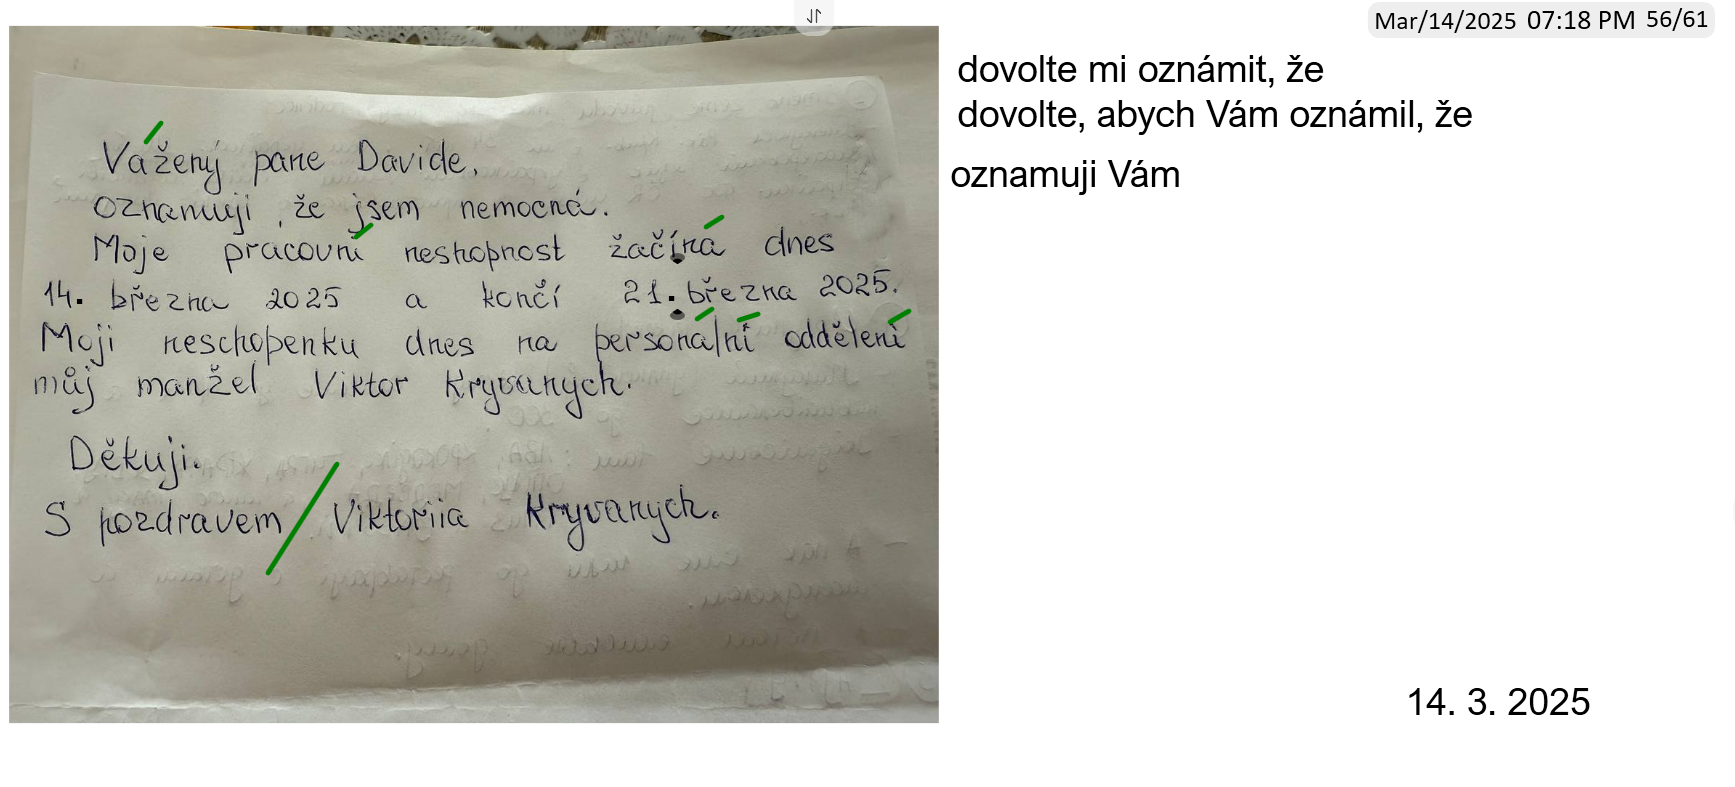 Mar/14/2025 07:18 PM 56/61
Vážený pane Davide,
oznamuji, že jsem nemocná.
Moje pracovní neshopnost žačíná dnes
14. března 2025 a končí 21. března 2025.
Moji neschopenku dnes na personální oddělení
můj manžel Viktor Kryvanych.
Děkuji.
S pozdravem / Viktoriia Kryvanych.
dovolte mi oznámit, že
dovolte, abych Vám oznámil, že
oznamuji Vám
14. 3. 2025